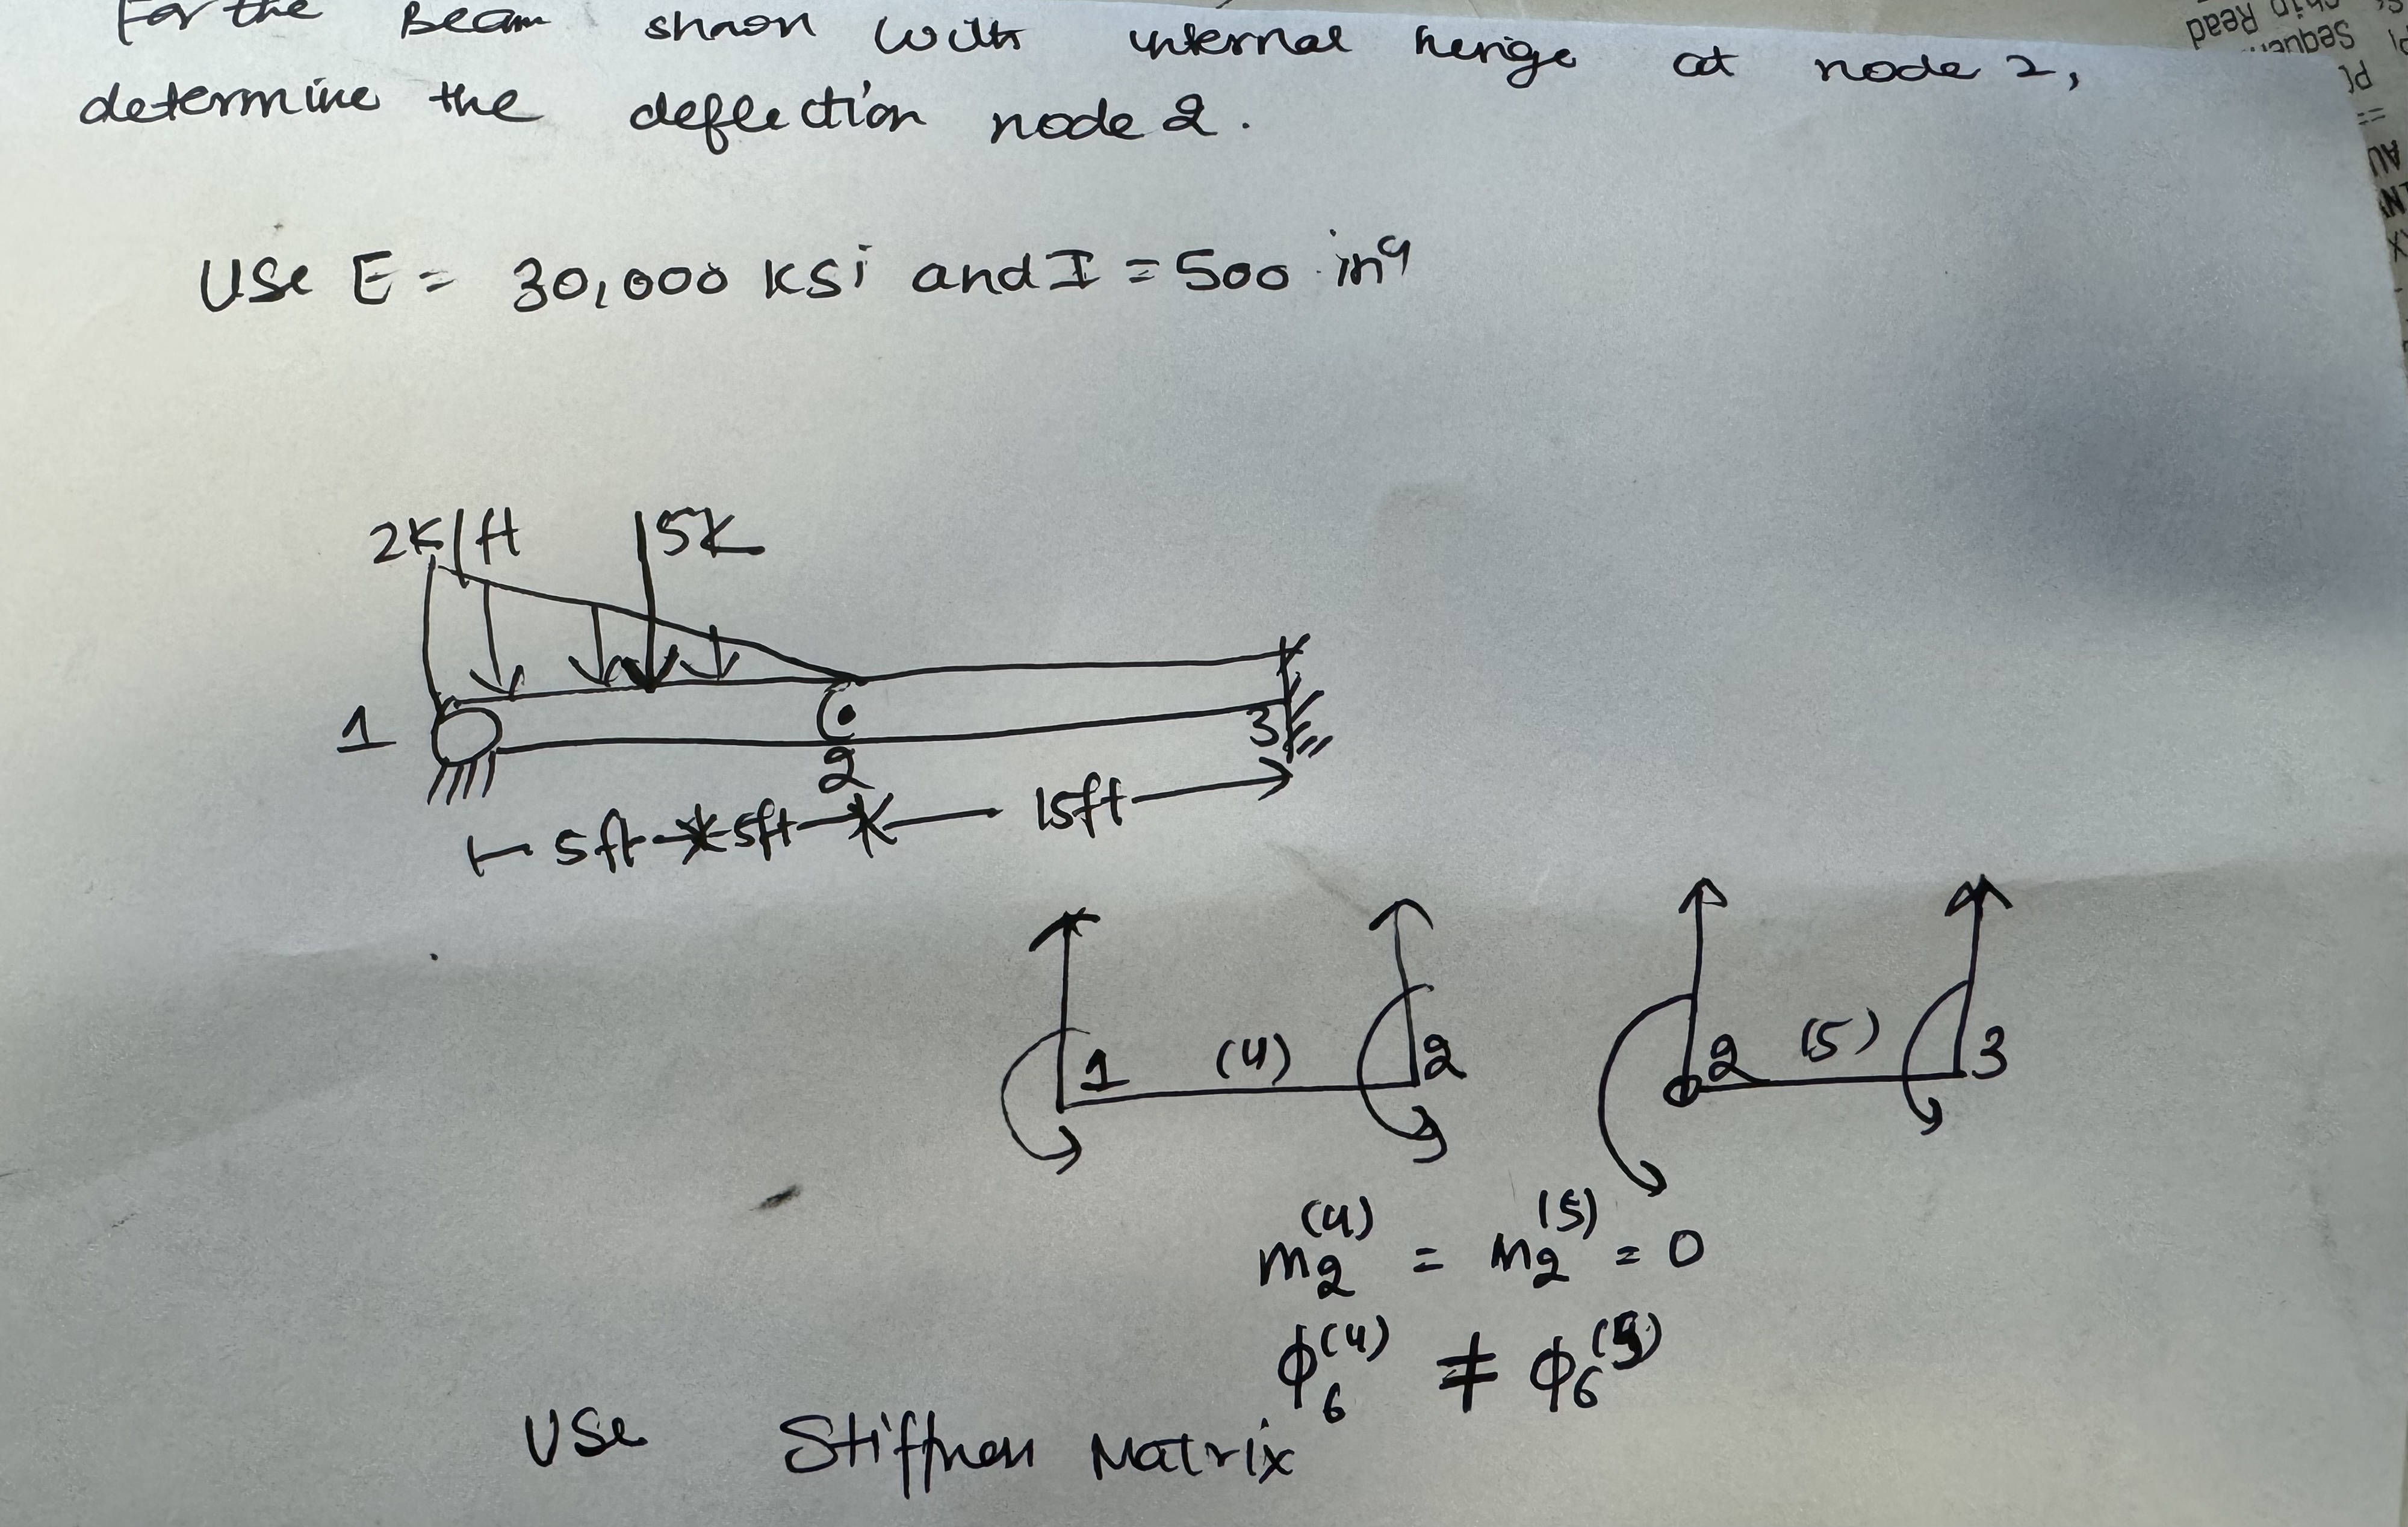 For the Beam shown with internal hinge at node 2,
determine the deflection node 2.
Use E = 30,000 ksi and I = 500 in⁴
2K/ft 5K
1 2 3
5ft 5ft 15ft
1 (4) 2 2 (5) 3
m₂⁽⁴⁾ = m₂⁽⁵⁾ = 0
ϕ₆⁽⁴⁾ ≠ ϕ₆⁽⁵⁾
Use Stiffness Matrix
Read
Seque